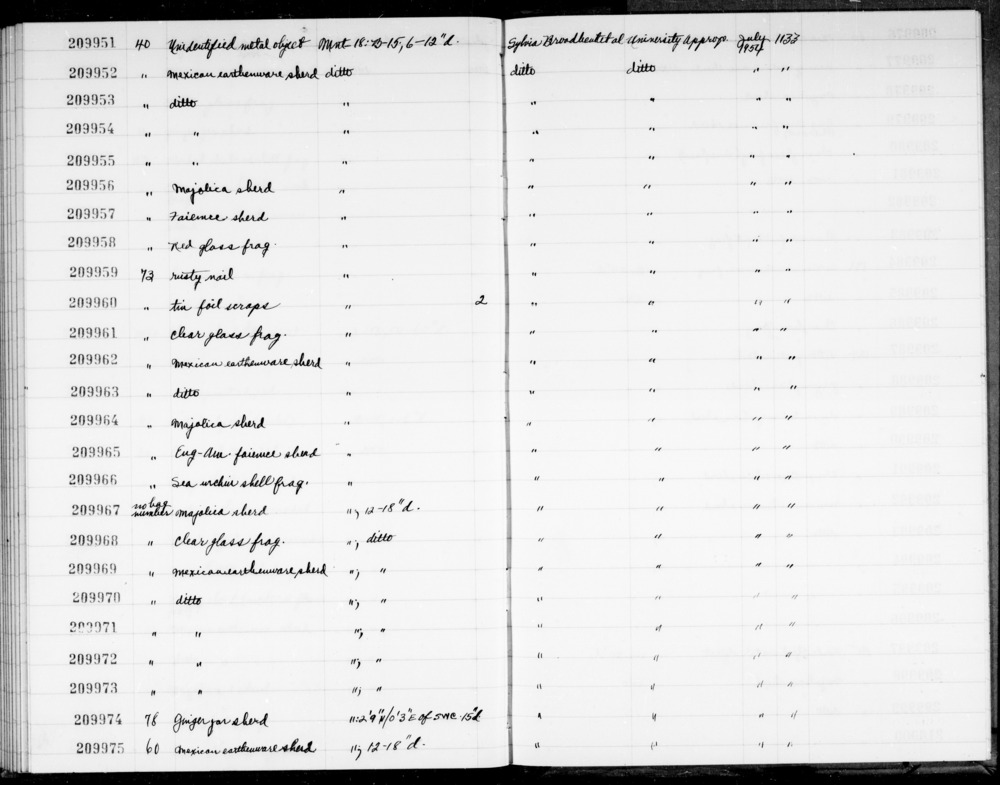 209951 40 Unidentified metal object Mnt 18: D-15, 6-12"d. Sylvia Broadbent et al University approp. July 1954 1133
209952 " Mexican earthenware sherd ditto ditto ditto " "
209953 " ditto " " " " "
209954 " " " " " " "
209955 " " " " " " "
209956 " Majolica sherd " " " " "
209957 " Faience sherd " " " " "
209958 " Red glass frag. " " " " "
209959 72 rusty nail " " " " "
209960 " tin foil scraps " 2 " " " "
209961 " Clear glass frag. " " " " "
209962 " Mexican earthenware sherd " " " " "
209963 " ditto " " " " "
209964 " Majolica sherd " " " " "
209965 " Eng-Am. faience sherd " " " " "
209966 " Sea urchin shell frag. " " " " "
209967 no bag number Majolica sherd ", 12-18"d. " " " "
209968 " Clear glass frag. ", ditto " " " "
209969 " Mexican earthenware sherd ", " " " " "
209970 " ditto ", " " " " "
209971 " " ", " " " " "
209972 " " ", " " " " "
209973 " " ", " " " " "
209974 78 Ginger jar sherd ": 2'9"N/0'3"E of SWC-15"d " " " "
209975 60 Mexican earthenware sherd ", 12-18"d. " " " "